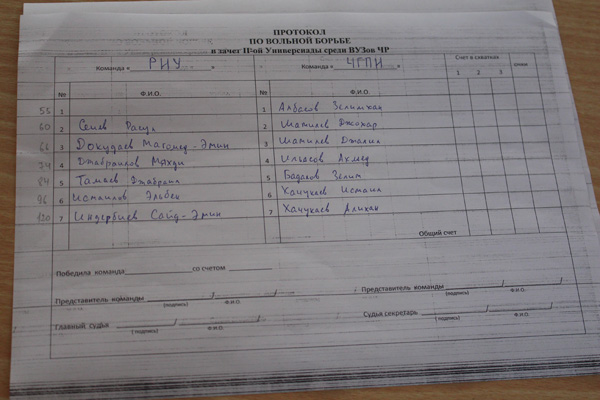 ПРОТОКОЛ
ПО ВОЛЬНОЙ БОРЬБЕ
в зачет II-ой Универсиады среди ВУЗов ЧР
Команда « РИУ » Команда « ЧГПИ » Счет в схватках очки
1 2 3
№ Ф.И.О. № Ф.И.О.
55 1 1 Албасов Зелимхан
60 2 2 Шатилев Джохар
66 3 Докудаев Магомед-Эмин 3 Шатилев Джалил
74 4 Джабраилов Махди 4 Ильясов Ахмед
84 5 Тамаев Джабраил 5 Бадалов Зелим
96 6 Исмаилов Эльбек 6 Хачукаев Исмаил
120 7 Индербиев Сайд-Эмин 7 Хачукаев Алихан
Общий счет
Победила команда со счетом
Представитель команды / / Представитель команды / /
(подпись) Ф.И.О. (подпись) Ф.И.О.
Главный судья / / Судья секретарь / /
(подпись) Ф.И.О. (подпись) Ф.И.О.